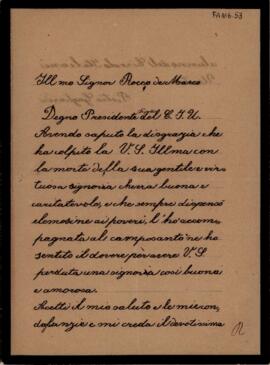 FA616-53
Ill mo Signor Rocco de Marco
Degno Presidente del C. I. U.
Avendo saputo la disgrazia che
ha colpito la V. S. Illma con
la morte della sua gentile e vir
tuosa signora ch'era buona e
caritatevole, e che sempre dispensò
elemosine ai poveri, l'ho accom
pagnata al camposanto ne ho
sentito il dovere per avere V. S
perduta una signora così buona
e amorosa.
Accetti il mio saluto e le mie con,
doglianze e mi creda il devotissimo